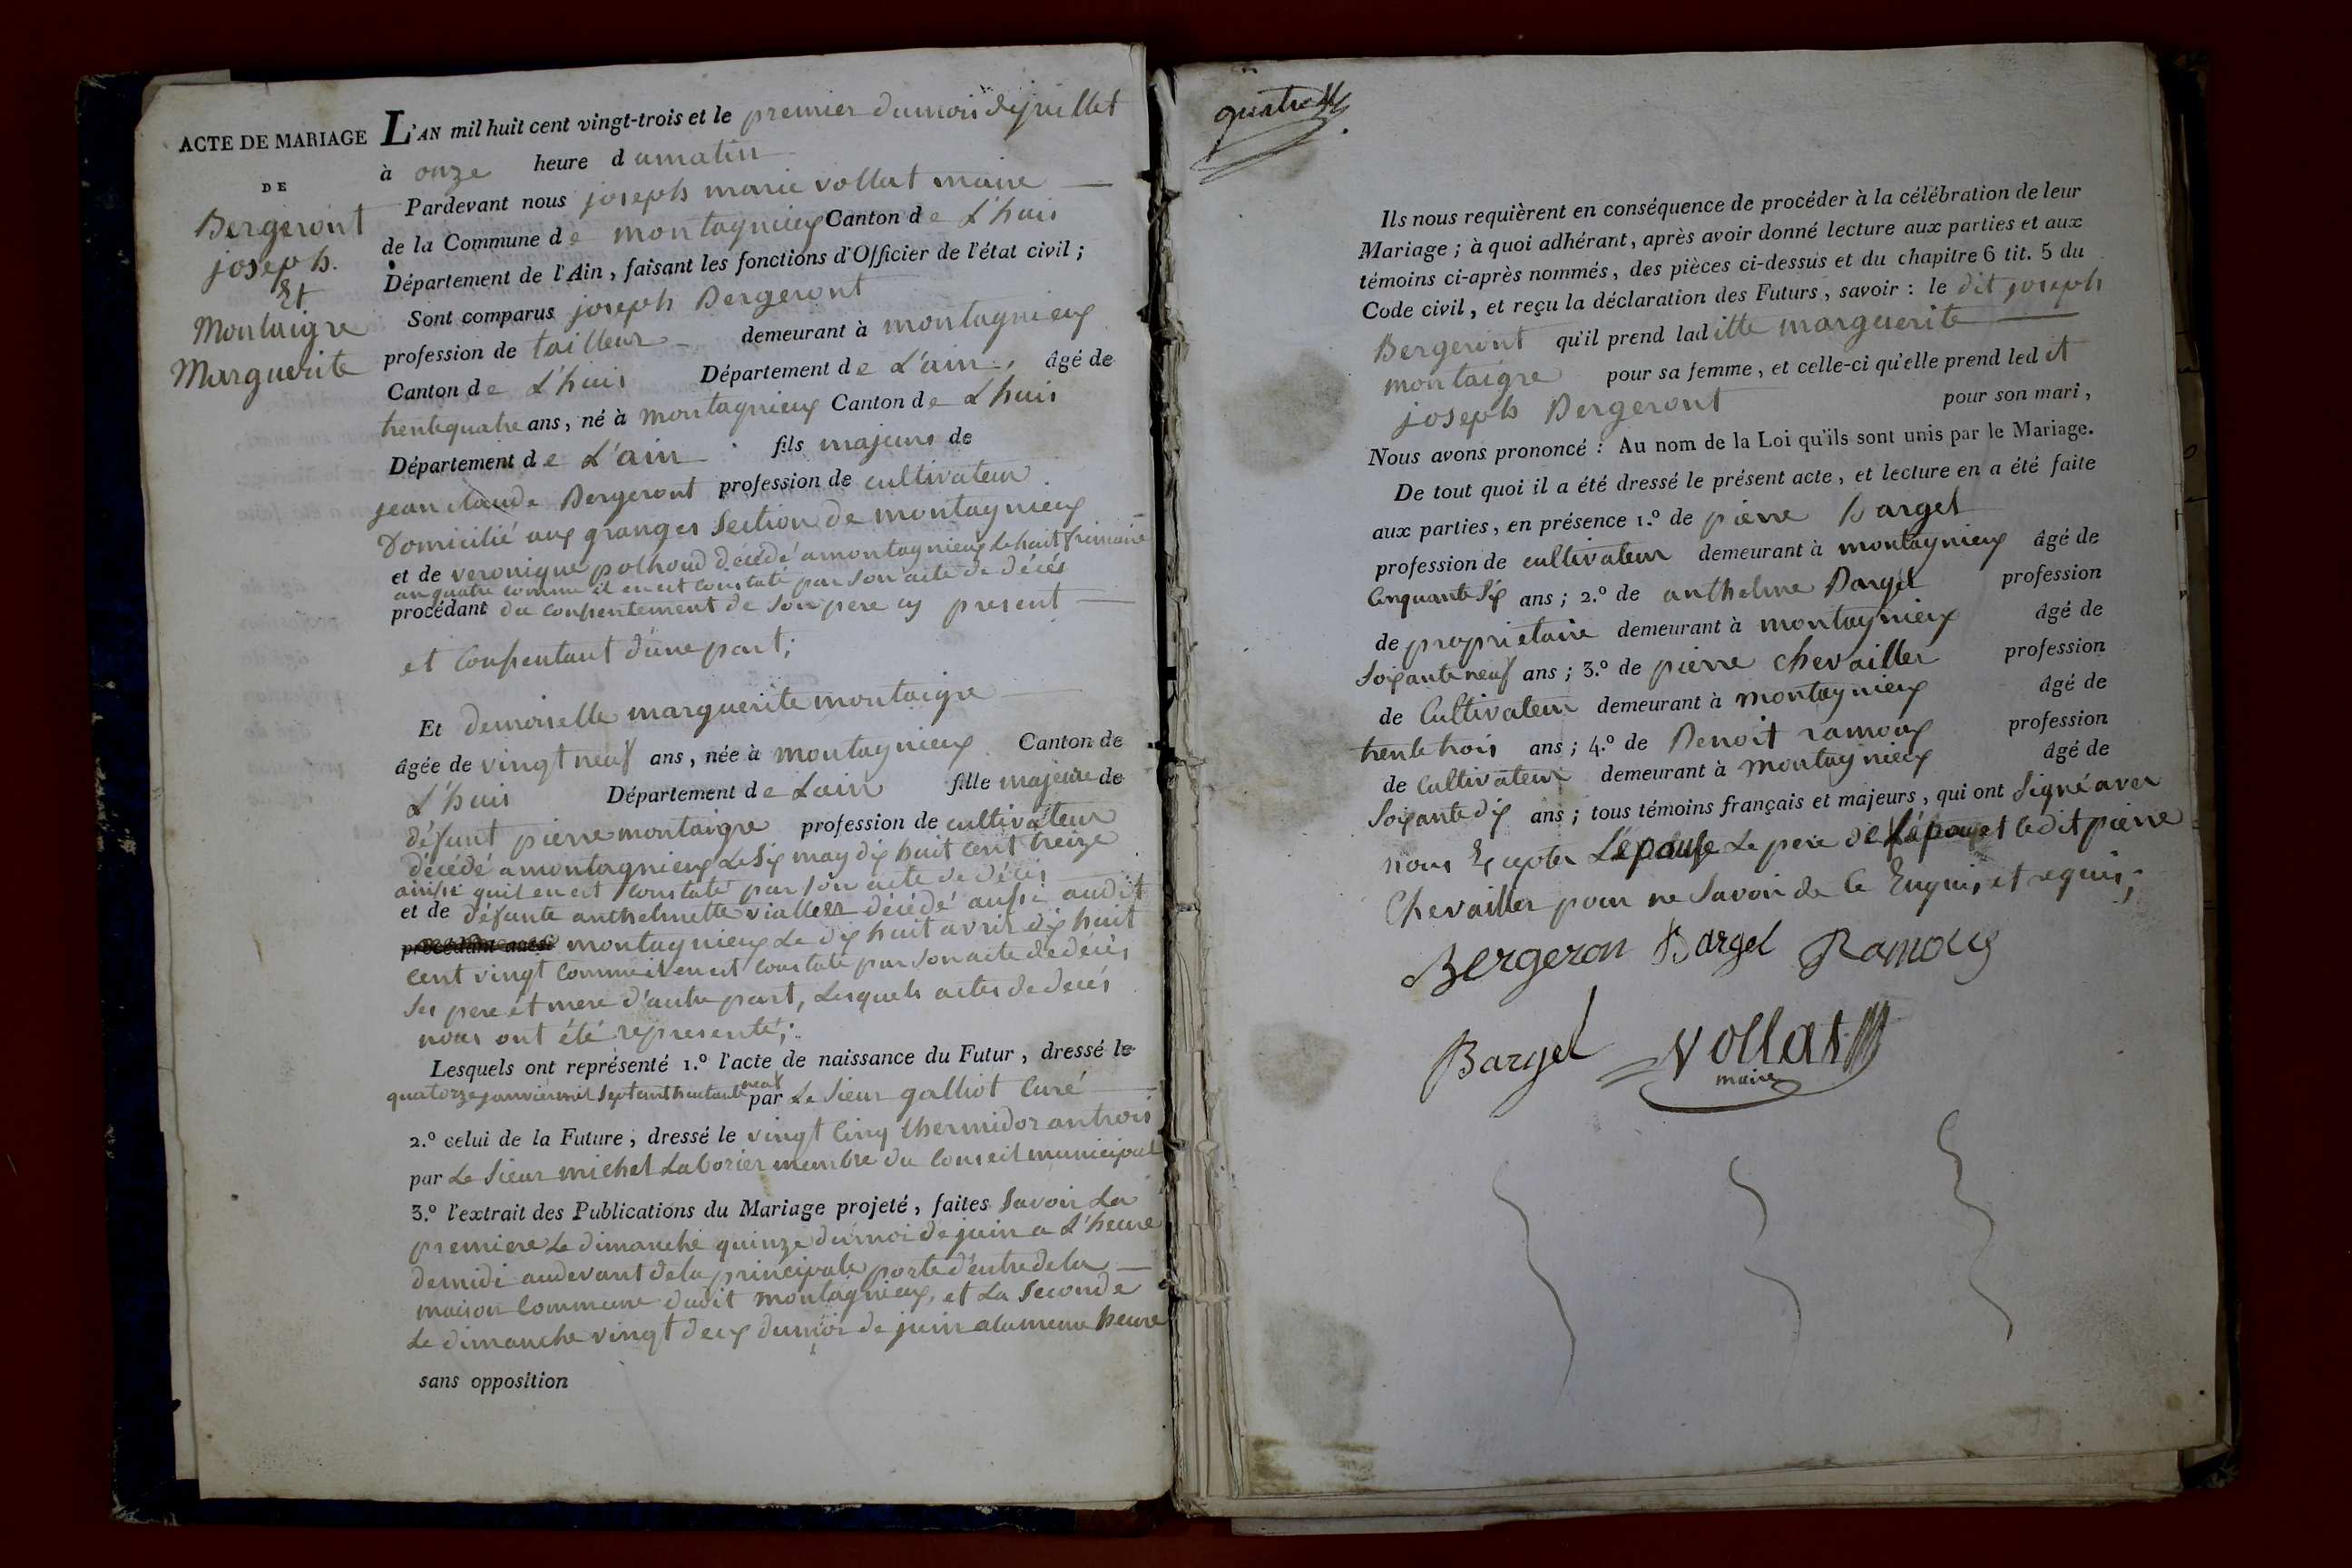 ACTE DE MARIAGE
DE
Bergeront
joseph.
Et
Montaigre
Marguerite
L'AN mil huit cent vingt-trois et le premier du mois de juillet
à onze heure d umatin
Pardevant nous joseph marie vollat maire
de la Commune de montagnieux Canton de L'huis
Département de l'Ain, faisant les fonctions d'Officier de l'état civil;
Sont comparus joseph Bergeront
profession de tailleur demeurant à montagnieux
Canton de L'huis Département de L'ain, âgé de
trente quatre ans, né à montagnieux Canton de L'huis
Département de L'ain fils majeur de
jean claude Bergeront profession de cultivateur
Domicilié aux granges Section de montagnieux
et de veronique polhoud décédé a montagnieux le huit frimaire
an quatre comme il en est constaté par son acte de décés
procédant du consentement de son pere cy present
et Consentant d'une part;
Et demoiselle marguerite montaigre
âgée de vingt neuf ans, née à montagnieux Canton de
L'huis Département de Lain fille majeure de
défunt pierre montaigre profession de cultivateur
décédé a montagnieux Le Six may dix huit cent treize
ainsi quil en est constaté par son acte de décés
et de défunte anthelmette viallet décédé aussi audit
montagnieux Le dix huit avril dix huit
cent vingt comme il en est constaté par son acte de décés
Ses pere et mere d'autre part, Lesquels actes de decés
nous ont été representé;
Lesquels ont représenté 1.º l'acte de naissance du Futur, dressé le
quatorze janvier mil Sept cent huitante neuf par Le Sieur galliot Curé
2.º celui de la Future, dressé le vingt Cinq thermidor an trois
par Le Sieur michel Laborier membre du Conseil municipal
3.º l'extrait des Publications du Mariage projeté, faites Savoir La
premiere Le dimanche quinze du moi de juin a L'heure
de midi audevant de la principale porte d'entre de la
maison Commune dudit montagnieux, et La Seconde
Le dimanche vingt deux du moi de juin a la meme heure
sans opposition
quatre
Ils nous requièrent en conséquence de procéder à la célébration de leur
Mariage; à quoi adhérant, après avoir donné lecture aux parties et aux
témoins ci-après nommés, des pièces ci-dessus et du chapitre 6 tit. 5 du
Code civil, et reçu la déclaration des Futurs, savoir: le dit joseph
Bergeront qu'il prend lad itte marguerite
montaigre pour sa femme, et celle-ci qu'elle prend led it
joseph Bergeront pour son mari,
Nous avons prononcé: Au nom de la Loi qu'ils sont unis par le Mariage.
De tout quoi il a été dressé le présent acte, et lecture en a été faite
aux parties, en présence 1.º de pierre Bargel
profession de cultivateur demeurant à montagnieux âgé de
Cinquante Six ans; 2.º de anthelme Bargel profession
de proprietaire demeurant à montagnieux âgé de
Soixante neuf ans; 3.º de pierre chevailler profession
de Cultivateur demeurant à montagnieux âgé de
trente trois ans; 4.º de Benoit ramoux profession
de Cultivateur demeurant à montagnieux âgé de
Soixante dix ans; tous témoins français et majeurs, qui ont Signé avec
nous Excepter L'épouse Le pere de L'époux et ledit pierre
Chevailler pour ne Savoir de Ce Enquis et requis;
Bergeron Bargel Ramoux
Bargel Vollat
maire